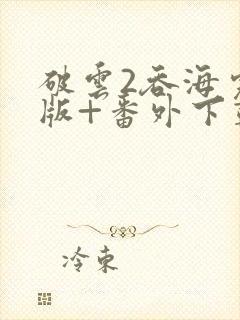 破雲2吞海
版+番外下
冷東